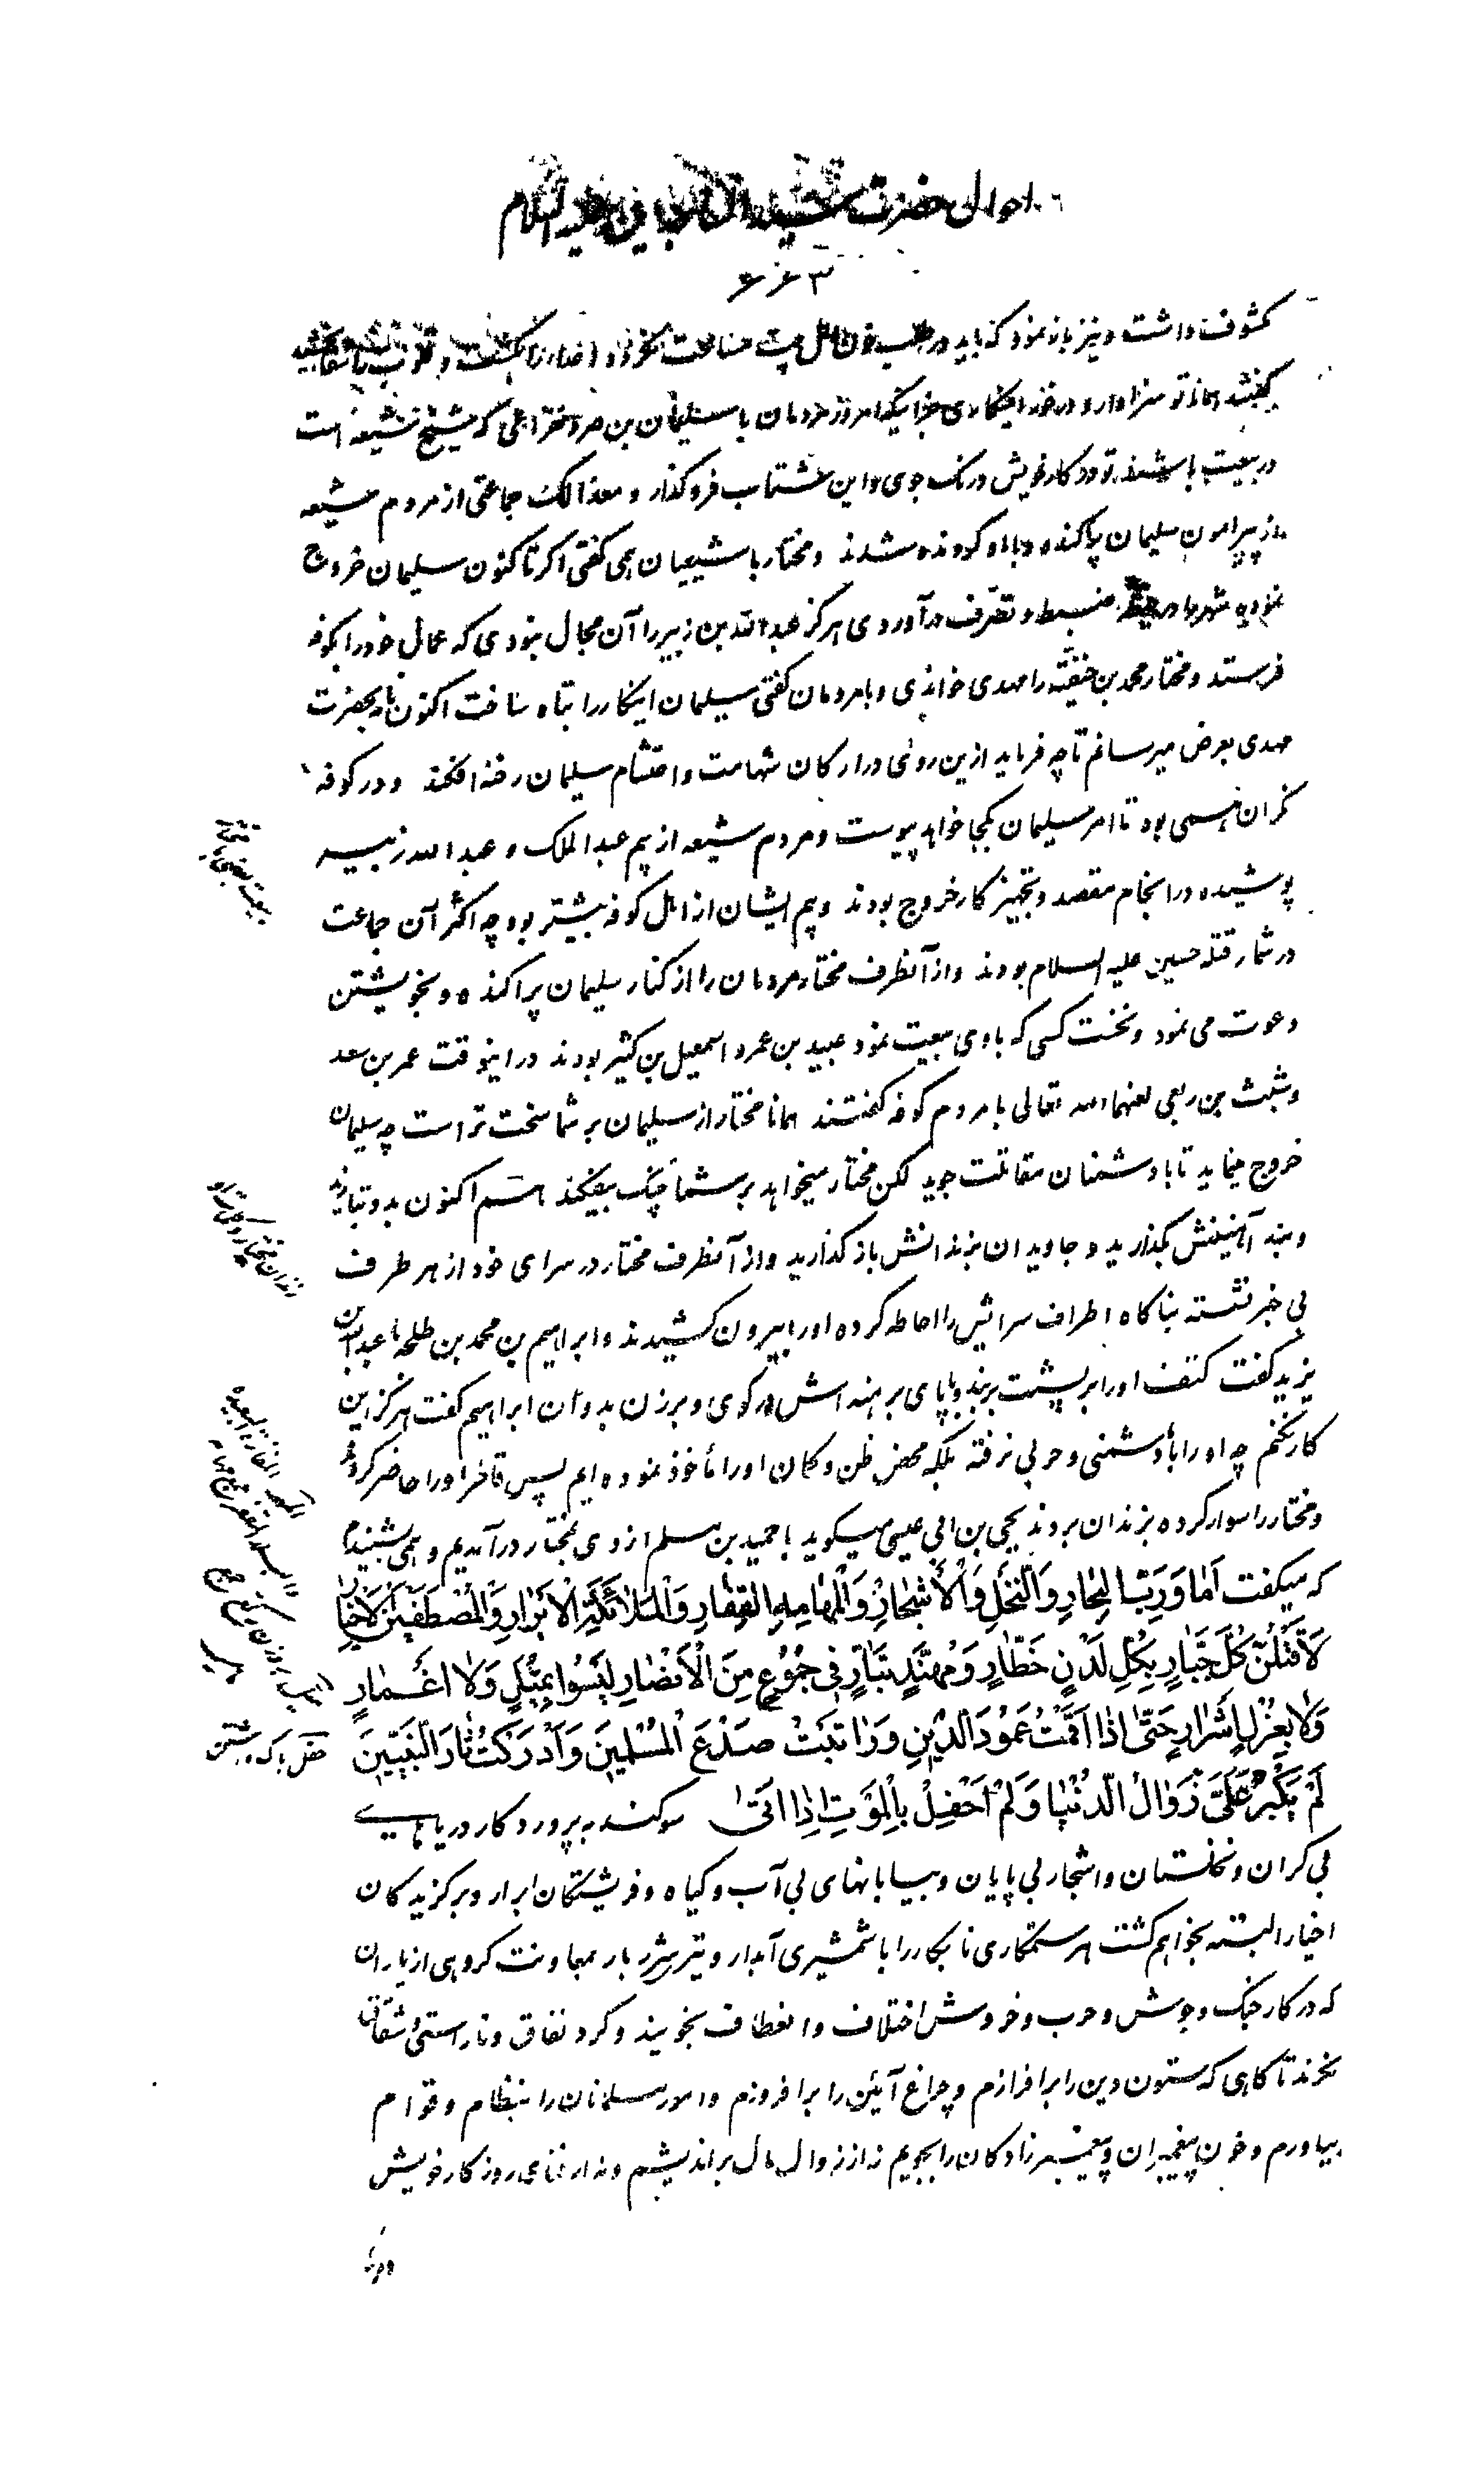 احوال حضرت سید الساجدین علیه السلام
۶۶۳
مکشوف داشت و نیز باز نمود که باید در طلب خون اهل بیت مسامحت نکرد و
همانا تو سزاوار و در خور اینکاری جز اینکه امروز مردمان با سلیمان بن صرد خزاعی که شیخ شیعه است
در بیعت باشند تو در کار خویش درنک جوی و این شتاب فرو گذار و معذالک جماعتی از مردم شیعه
از پیرامون سلیمان پراکنده و با او گرونده شدند و مختار با شیعیان همی گفتی اگر تا کنون سلیمان خروج
نموده شهرها در حیطه ضبط و تصرف در آوردی هرگز عبدالله بن زبیر را آن مجال نبودی که عمال خود را بکوفه
فرستد و مختار محمد بن حنفیه را مهدی خواندی و با مردمان گفتی سلیمان اینکار را تباه ساخت اکنون باید بحضرت
مهدی بعرض میرسانم تا چه فرماید ازین روی در ارکان شهامت و احتشام سلیمان رخنه افکند و در کوفه
نگران همی بود تا امر سلیمان بکجا خواهد پیوست و مردم شیعه از بیم عبد الملک و عبد الله زبیر
پوشیده در انجام مقصد و تجهیز کار خروج بودند و بیم ایشان از اهل کوفه بیشتر بود چه اکثر آن جماعت
در شمار قتله حسین علیه السلام بودند و از آنطرف مختار مردمان را از کنار سلیمان پراکنده و بخویشتن
دعوت می نمود و نخست کسی که با وی بیعت نمود عبید بن عمرو اسمعیل بن کثیر بودند در اینوقت عمر بن سعد
و شبث بن ربعی لعنهما الله تعالی با مردم کوفه گفتند همانا مختار از سلیمان بر شما سخت تر است چه سلیمان
خروج مینماید تا با دشمنان مقاتلت جوید لکن مختار میخواهد بر شما چنک بیفکند هم اکنون بدو بتازید
و بند آهنینش بگذارید و جاویدان بزندانش باز گذارید و از آنطرف مختار در سرای خود از هر طرف
بی خبر نشسته بناگاه اطراف سرایش را احاطه کرده او را بیرون کشیدند و ابراهیم بن محمد بن طلحه با عبدالله بن
یزید گفت کتف او را بر پشت بر بند و با پای برهنه اش در کوی و برزن بدوان ابراهیم گفت هرگز این
کار نکنم چه او را با دشمنی و حربی نرفته بلکه محض ظن و گمان او را مأخوذ نموده ایم پس قاطر او را حاضر کردند
و مختار را سوار کرده بزندان بردند یحیی بن ابی عیسی میگوید با حمید بن مسلم ازدی بمختار در آمدیم و همی شنیدیم
که میگفت اَما وَ رَبِّ الْبِحارِ وَ النَّخْلِ وَ الْأَشْجارِ وَ الْمَهامِهِ الْقِفارِ وَ الْمَلائِکَةِ الْاَبْرارِ وَ الْمُصْطَفَیْنَ الْاَخْیارِ
لَاَقْتُلَنَّ کُلَّ جَبّارٍ بِکُلِّ لَدْنٍ خَطّارٍ وَ مُهَنَّدٍ بَتّارٍ فی جُمُوعٍ مِنَ الْاَنْصارِ لَیْسُوا بِمُیَّلٍ وَ لا اَغْمارٍ
وَ لا بِعُزَّلٍ اَشْرارٍ حَتّی اِذا اَقَمْتُ عَمُودَ الدّینِ وَ رَاَیْتُ صَدْعَ الْمُسْلِمینَ وَ اَدْرَکْتُ ثارَ النَّبِیّینَ
لَمْ یَکْبُرْ عَلَیَّ زَوالُ الدُّنْیا وَ لَمْ اَحْفِلْ بِالْمَوْتِ اِذا اَتی سوگند به پروردگار دریاهای
بی کران و نخلستان و اشجار بی پایان و بیابانهای بی آب و گیاه و فریشتگان ابرار و برگزیدگان
اخیار البته بخواهم کشت هر ستمکاری نابکار را با شمشیری آبدار و تیر شرر بار بمعاونت گروهی از یاران
که در کار جنک و جوش و حرب و خروش اختلاف و انعطاف نجویند و گرد نفاق و ناراستی و شقاق
نگردند تا گاهی که ستون دین را بر افرازم و چراغ آئین را بر افروزم و امور مسلمانان را بنظام و قوام
بیاورم و خون پیغمبران و پیغمبرزادگان را بجویم نه از زوال مال بر اندیشم و نه از فنای روزگار خویش